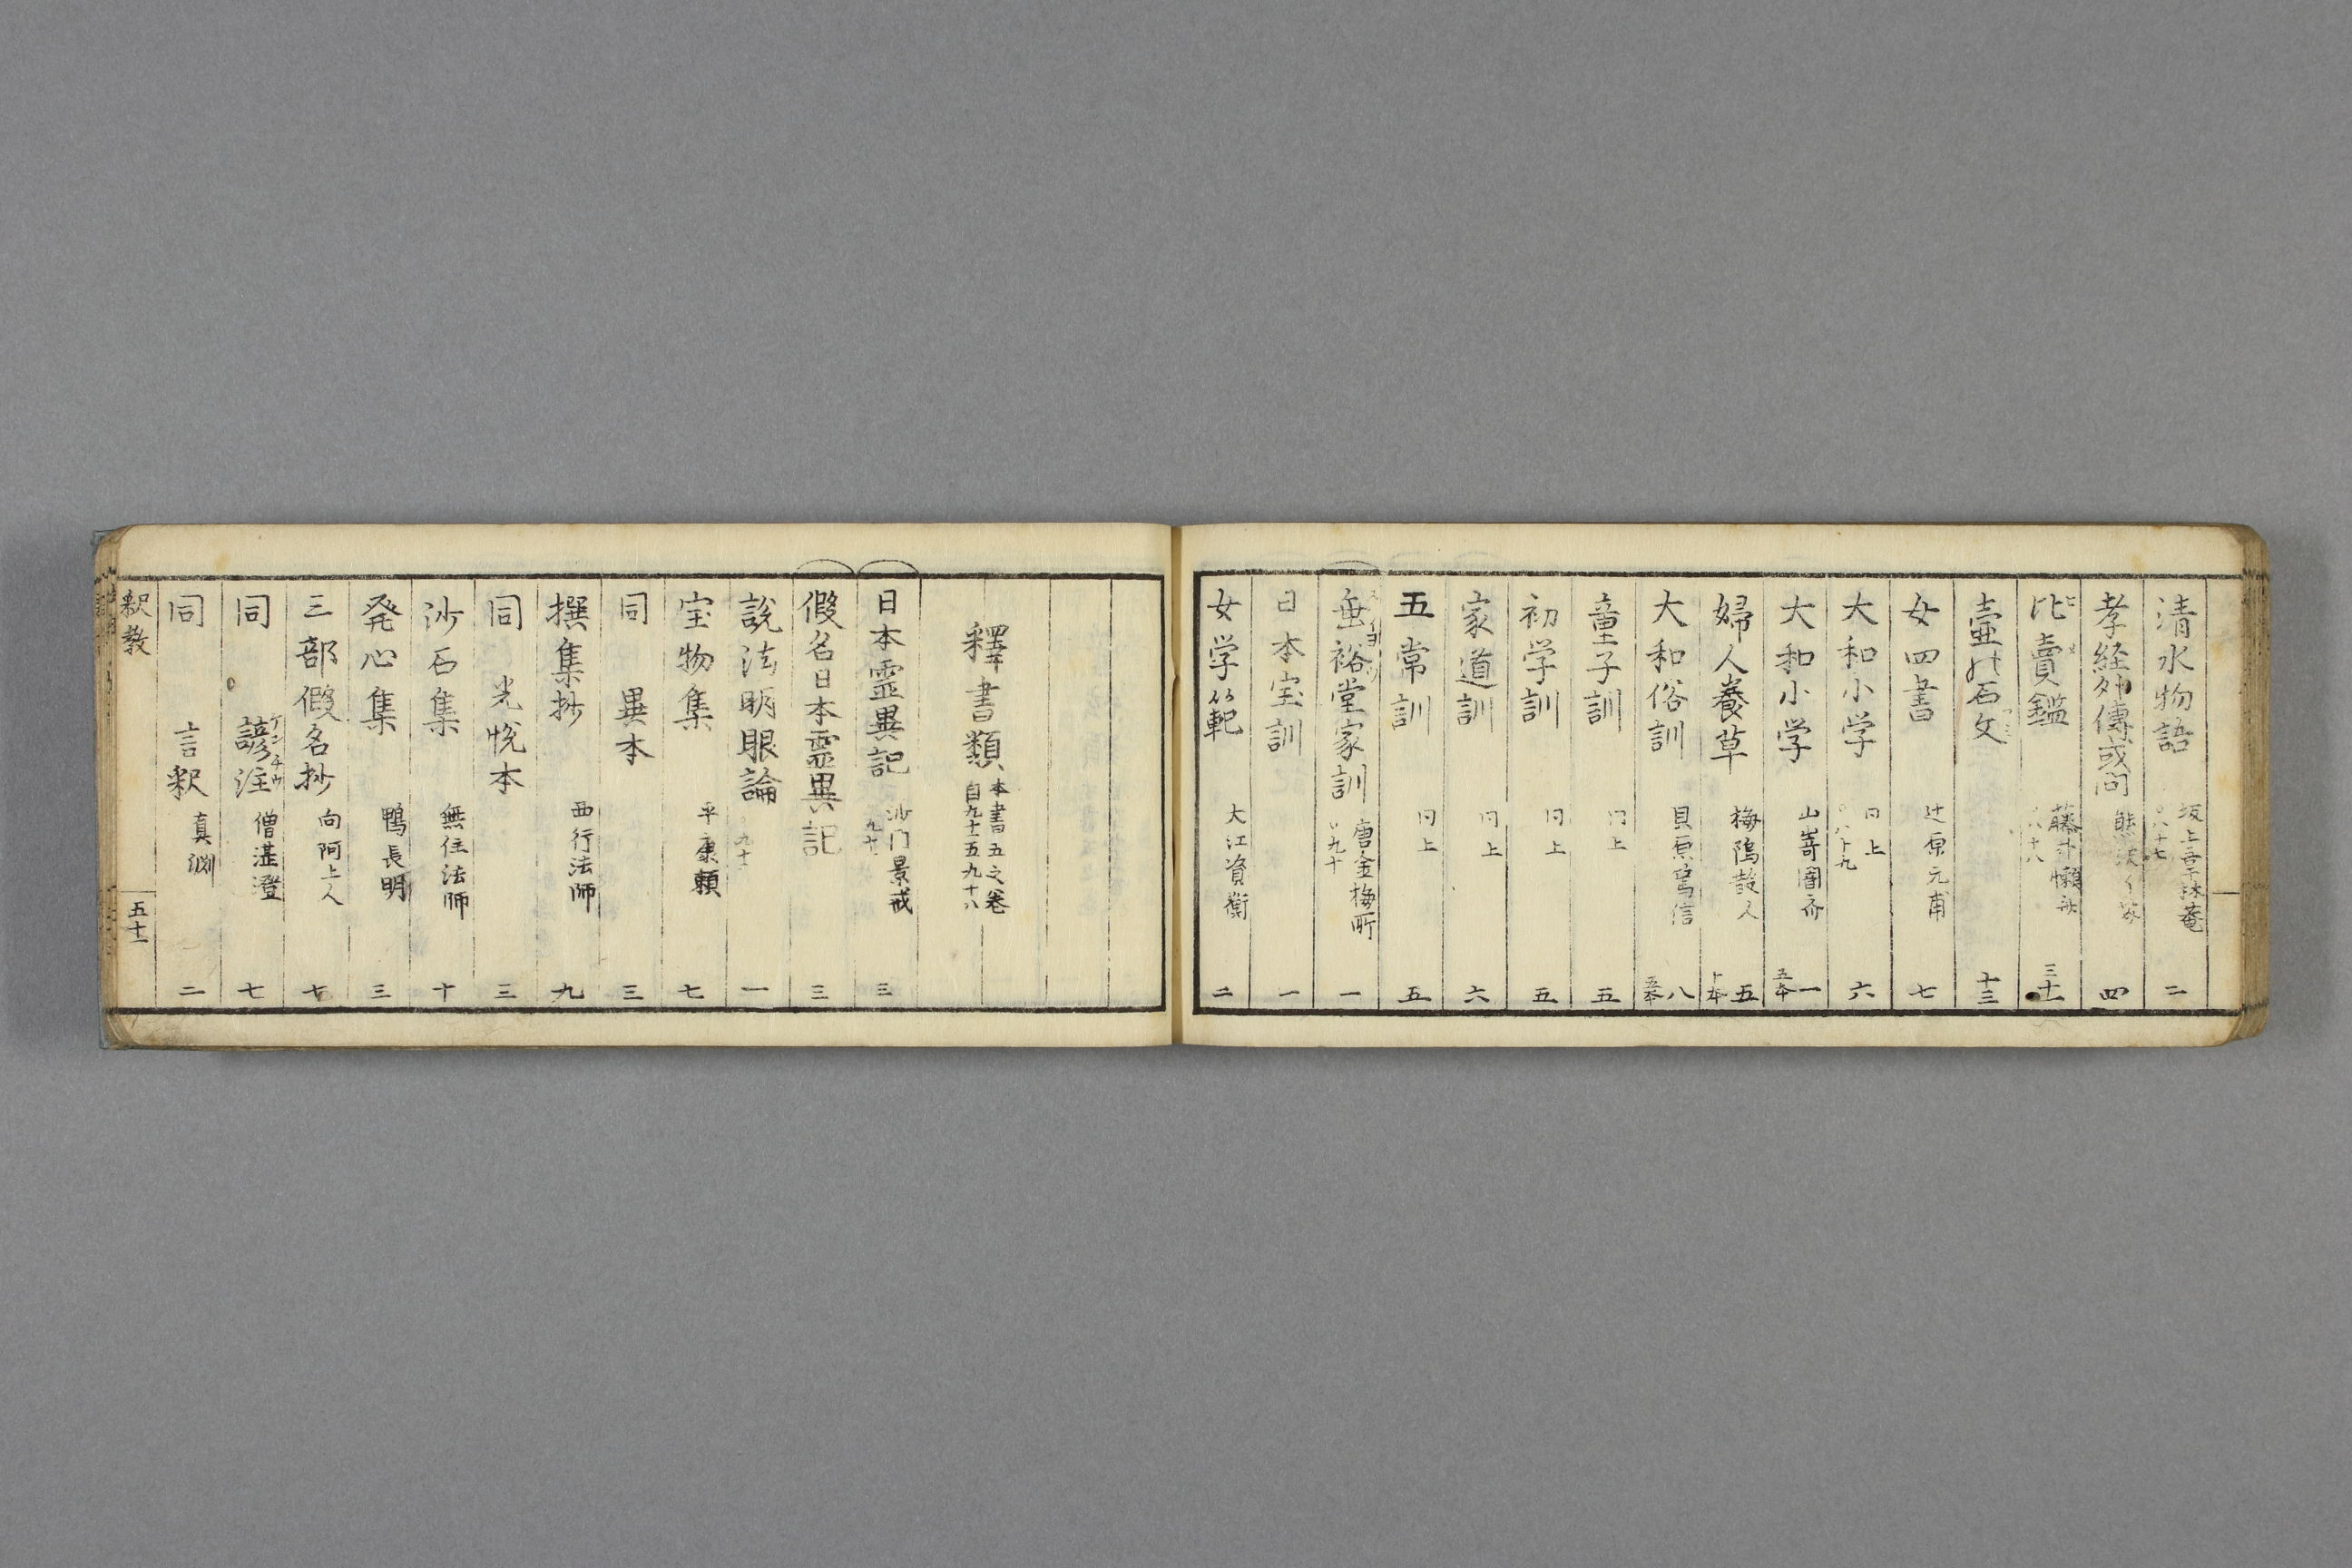 清水物語 坂上 二
孝経外傳或問 熊沢 四
比賣鑑 ヒメ 藤井懶斎 三十一
壷の石文 十三
女四書 辻原元甫 七
大和小学 同上 六
大和小学 山嵜闇斎 一 五本
婦人養草 梅隖散人 五 十本
大和俗訓 貝原篤信 八 五本
童子訓 同上 五
初学訓 同上 五
家道訓 同上 六
五常訓 同上 五
垂裕堂家訓 唐金梅所 九十 一
日本宝訓 一
女学範 大江資衡 二
釋書類 本書五之巻 自九十五九十八
日本霊異記 沙门景戒 三
假名日本霊異記 三
説法明眼論 一
宝物集 平康頼 七
同 異本 三
撰集抄 西行法師 九
同 光悦本 三
沙石集 無住法師 十
発心集 鴨長明 三
三部假名抄 向阿上人 七
同 諺注 ゲンチウ 僧湛澄 七
同 言釈 真渕 二
釈教 五十一